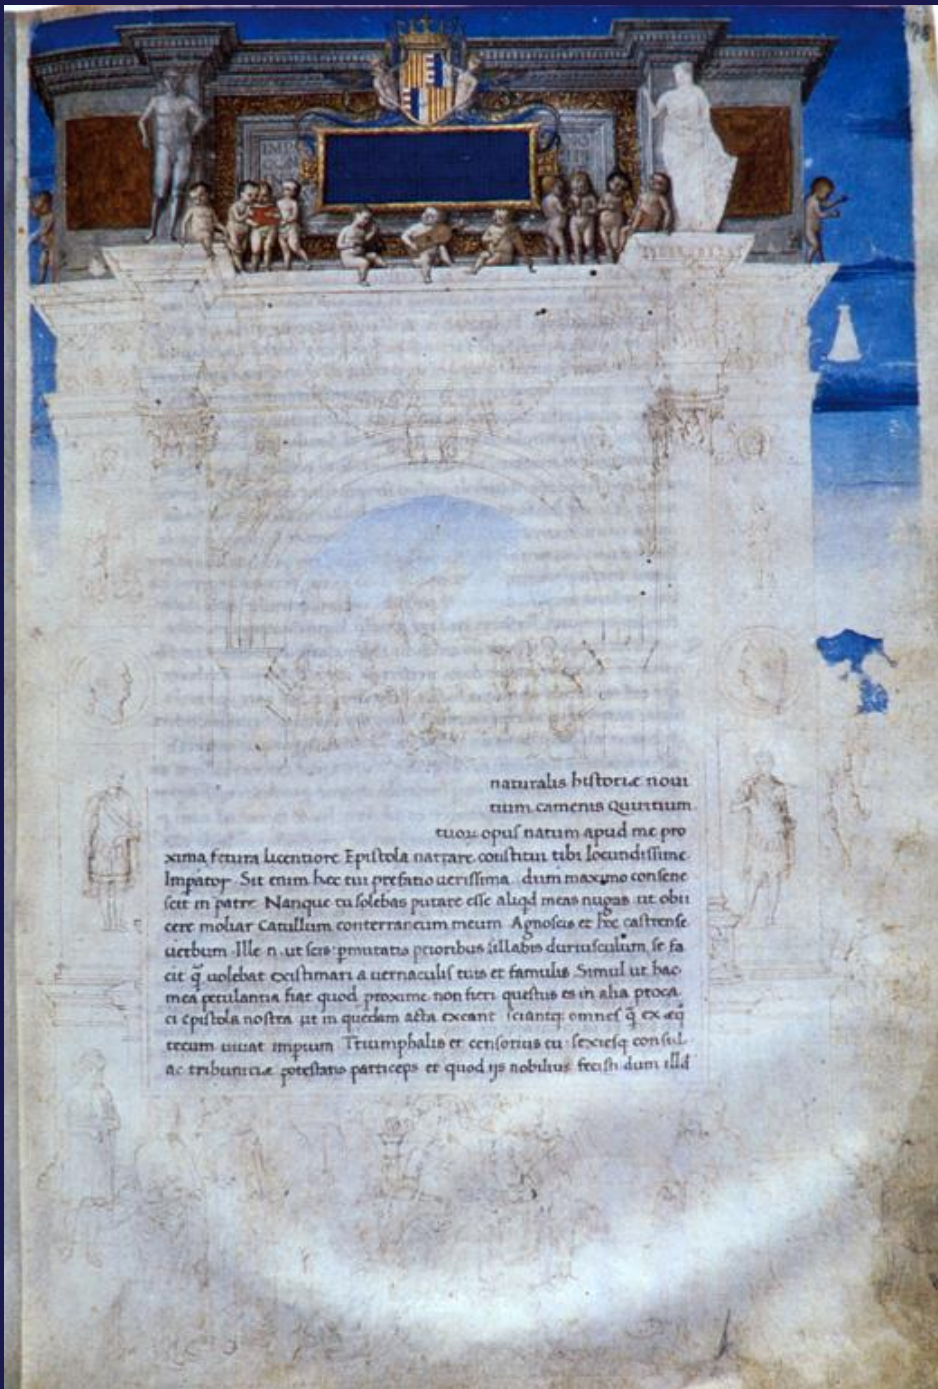 naturalis historiæ noui
tium camenis Quiritium
tuoꝝ opus natum apud me pro
xima fetura licentiore Epistola narrare constitui tibi Iocundissime
Impator Sit enim hæc tui prefatio uerissima dum maximo consene
scit in patre Nanque tu solebas putare esse aliqd meas nugas ut obii
cere moliar Catullum conterraneum meum Agnoscis et hoc castrense
uerbum Ille n ut scis pmutatis prioribus sillabis duriusculum se fa
cit q̃ uolebat existimari a uernaculis tuis et famulis Simul ut hac
mea petulantia fiat quod proxime non fieri questus es in alia proca
ci Epistola nostra ut in quedam acta exeant sciantq omnes q̃ ex æq
tecum uiuat impium Triumphalis et censorius tu sexiesq consul
ac tribuniciæ potestatis particeps et quod ijs nobilius fecisti dum illd